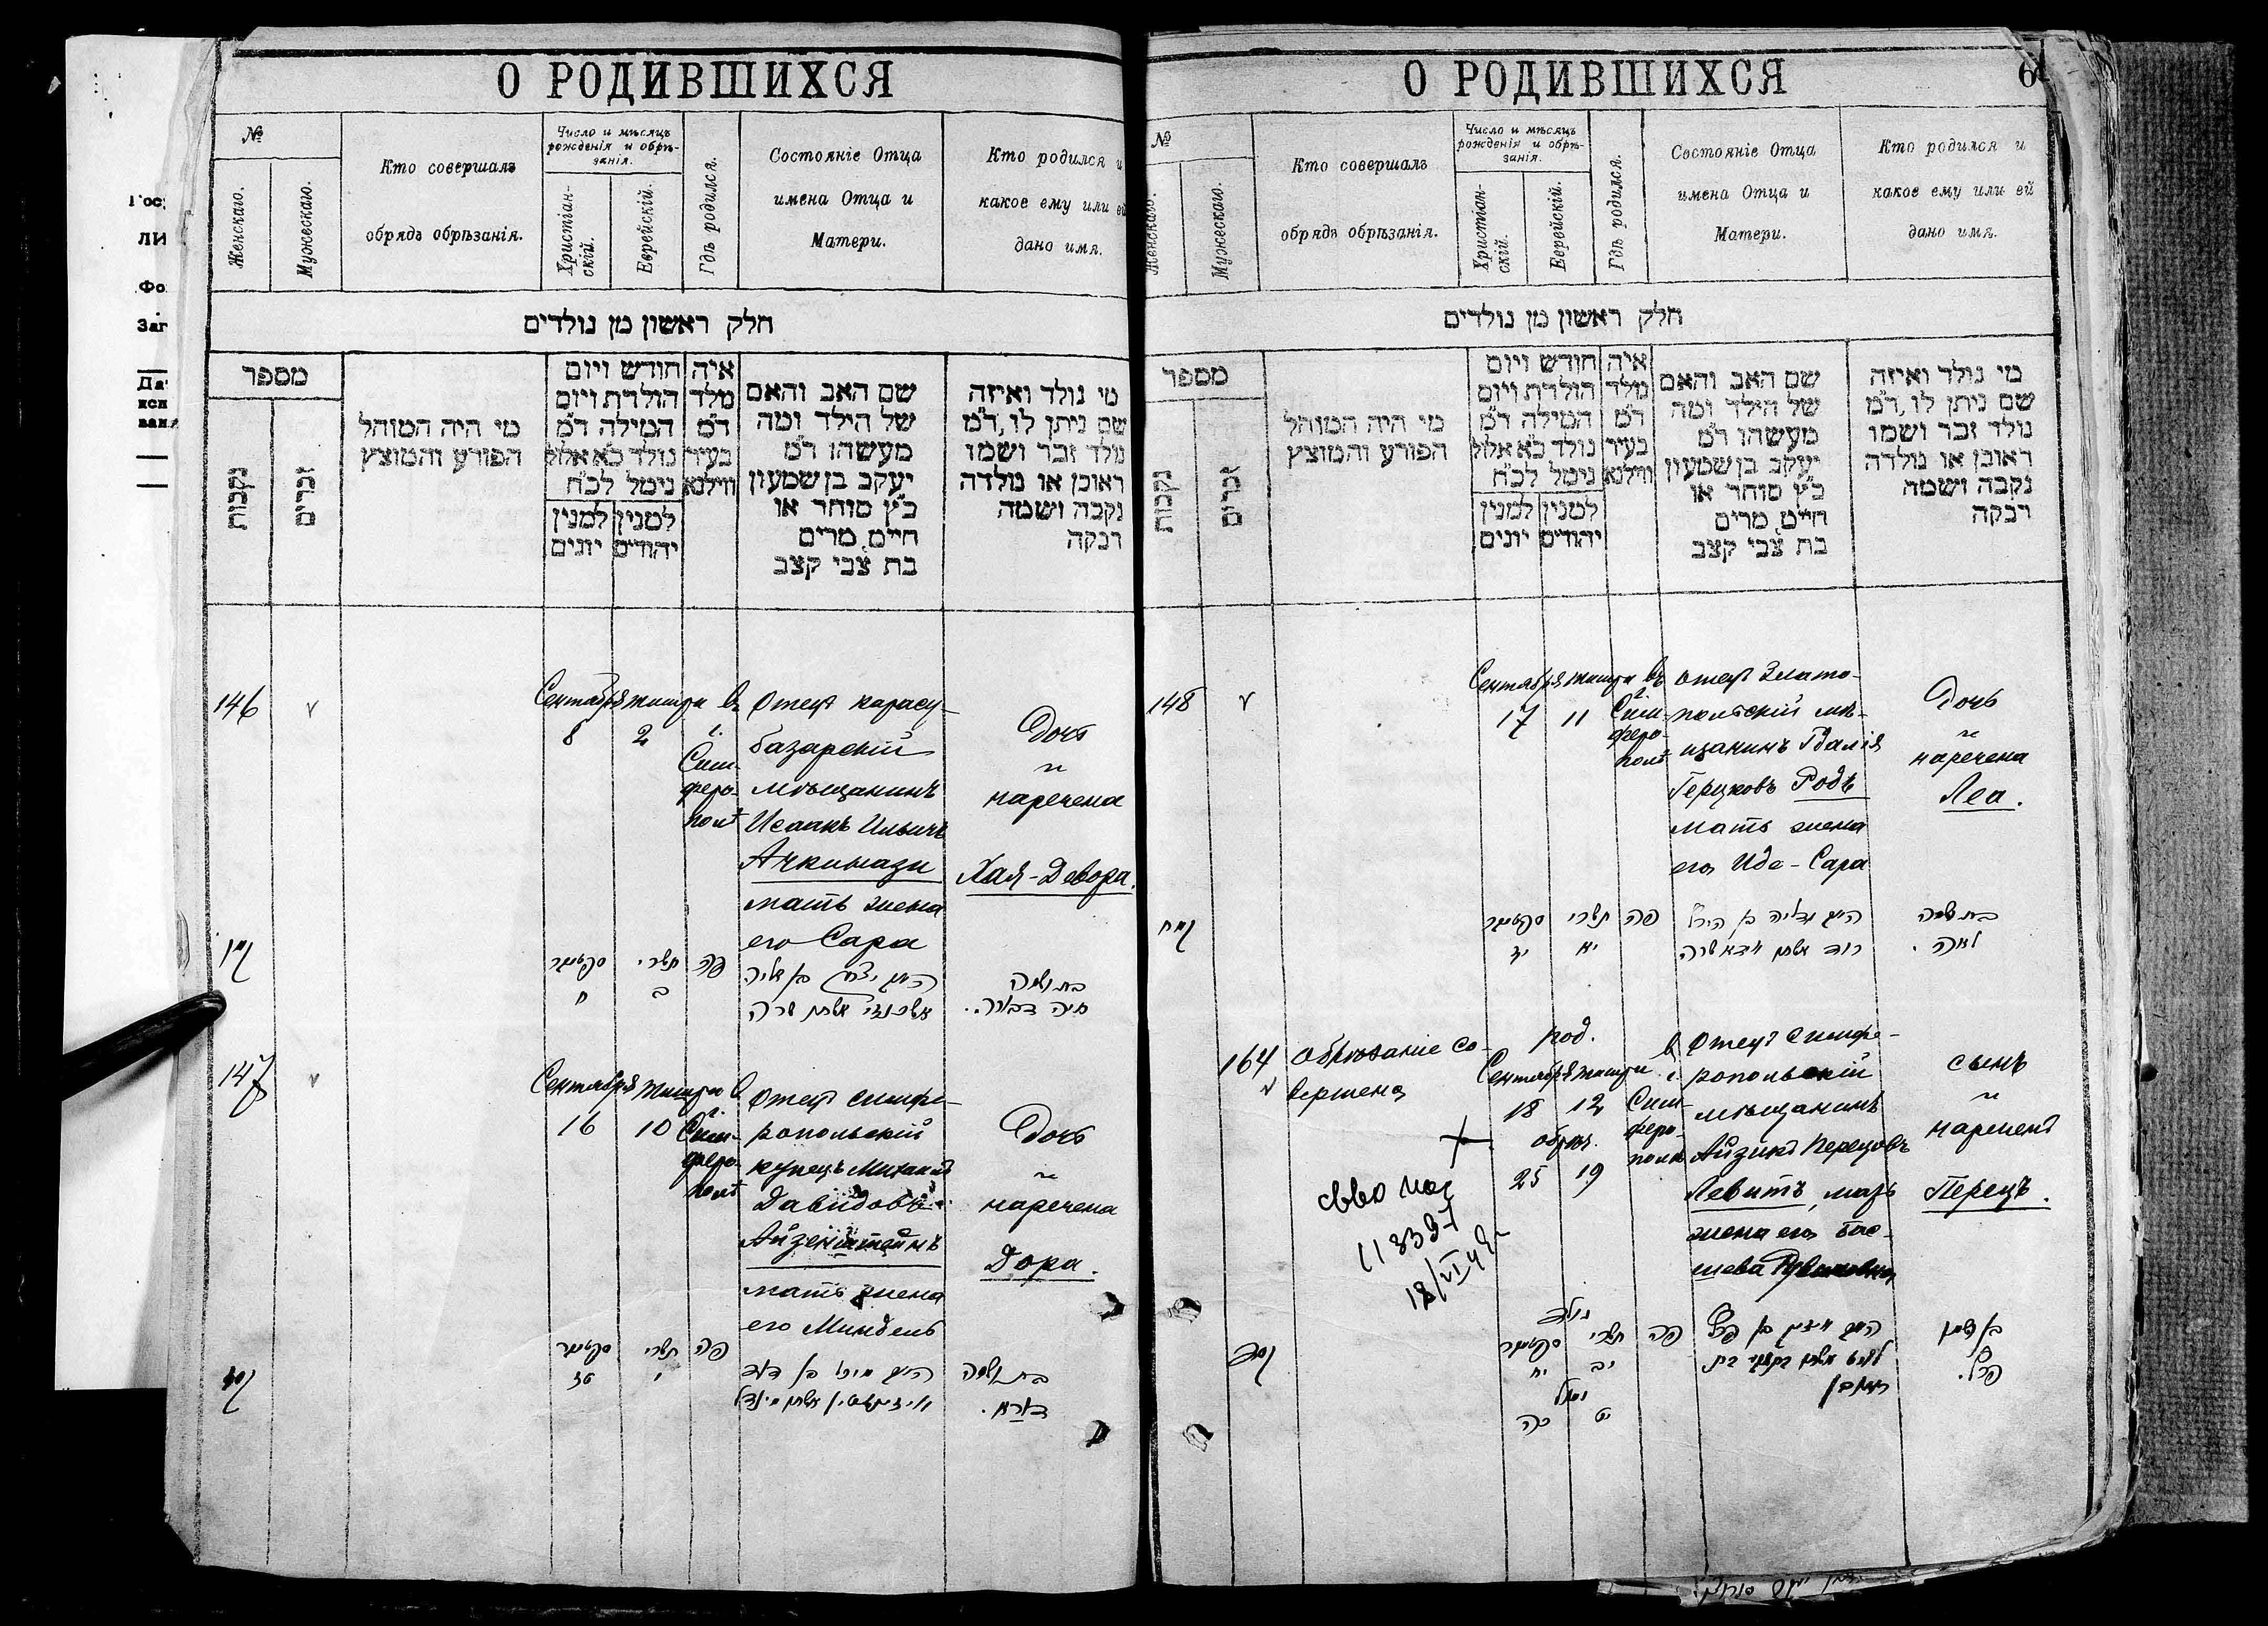 О РОДИВШИХСЯ
№
Женскаго.
Мужескаго.
Кто совершалъ
обрядъ обрѣзанія.
Число и мѣсяцъ
рожденія и обрѣ-
занія.
Христіан-
скій.
Еврейскій.
Гдѣ родился.
Состояніе Отца
имена Отца и
Матери.
Кто родился и
какое ему или ей
дано имя.
חלק ראשון מן נולדים
מספר
נקבות
זכרים
מי היה המוהל
הפורע והמוצץ
חודש ויום
הולדת ויום
המילה ד״מ
נולד כ״א אלול
נימל לכ״ח
למנין
יהודים
למנין
יונים
איה
מלד
ד״מ
בעיר
ווילנא
שם האב והאם
של הילד ומה
מעשהו ד״מ
יעקב בן שמעון
כ״ץ סוחר או
חייט, מרים
בת צבי קצב
מי נולד ואיזה
שם ניתן לו, ד״מ
נולד זכר ושמו
ראובן או נולדה
נקבה ושמה
רבקה
146
Сентября
8
тишри
2
въ
г.
Сим-
феро-
полѣ
Отецъ карасу-
базарскій
мѣщанинъ
Исаакъ Ильичъ
Ачкинази
мать жена
его Сара
Дочь
наречена
Хая-Девора.
ספטמבר
ח
תשרי
ב
פה
היו״ יצחק בן אליה
אשכנזי אשתו שרה
בת ושמה
חיה דבורה.
147
Сентября
16
тишри
10
в
г.
Сим-
феро-
полѣ
Отецъ симфе-
ропольскій
купецъ Михаилъ
Давидовъ
Айзенштейнъ
мать жена
его Миндель
Дочь
наречена
Дора.
ספטמבר
טז
תשרי
י
פה
בת ושמה
דורא.
О РОДИВШИХСЯ
61
№
Женскаго.
Мужескаго.
Кто совершалъ
обрядъ обрѣзанія.
Число и мѣсяцъ
рожденія и обрѣ-
занія.
Христіан-
скій.
Еврейскій.
Гдѣ родился.
Состояніе Отца
имена Отца и
Матери.
Кто родился и
какое ему или ей
дано имя.
חלק ראשון מן נולדים
מספר
נקבות
זכרים
מי היה המוהל
הפורע והמוצץ
חודש ויום
הולדת ויום
המילה ד״מ
נולד כ״א אלול
נימל לכ״ח
למנין
יהודים
למנין
יונים
איה
מלד
ד״מ
בעיר
ווילנא
שם האב והאם
של הילד ומה
מעשהו ד״מ
יעקב בן שמעון
כ״ץ סוחר או
חייט, מרים
בת צבי קצב
מי נולד ואיזה
שם ניתן לו, ד״מ
נולד זכר ושמו
ראובן או נולדה
נקבה ושמה
רבקה
148
Сентября
17
тишри
11
въ
г.
Сим-
феро-
полѣ
Отецъ Злато-
польскій мѣ-
щанинъ Гдалія
Герцковъ Родъ
мать жена
его Иде-Сара
Дочь
наречена
Леа.
קמח
ספטמבר
יז
תשרי
יא
פה
בת ושמה
לאה.
164
Обрѣзаніе со-
вершено
род.
Сентября
18
тишри
12
обрѣз.
25
19
в
г.
Сим-
феро-
полѣ
Отецъ симфе-
ропольскій
мѣщанинъ
Айзикъ Перецовъ
Левитъ, мать
жена его Бас-
шева
сынъ
нареченъ
Перецъ.
נולד
ספטמבר
יח
תשרי
יב
נימול
כה
יט
פה
בן ושמו
פרץ.